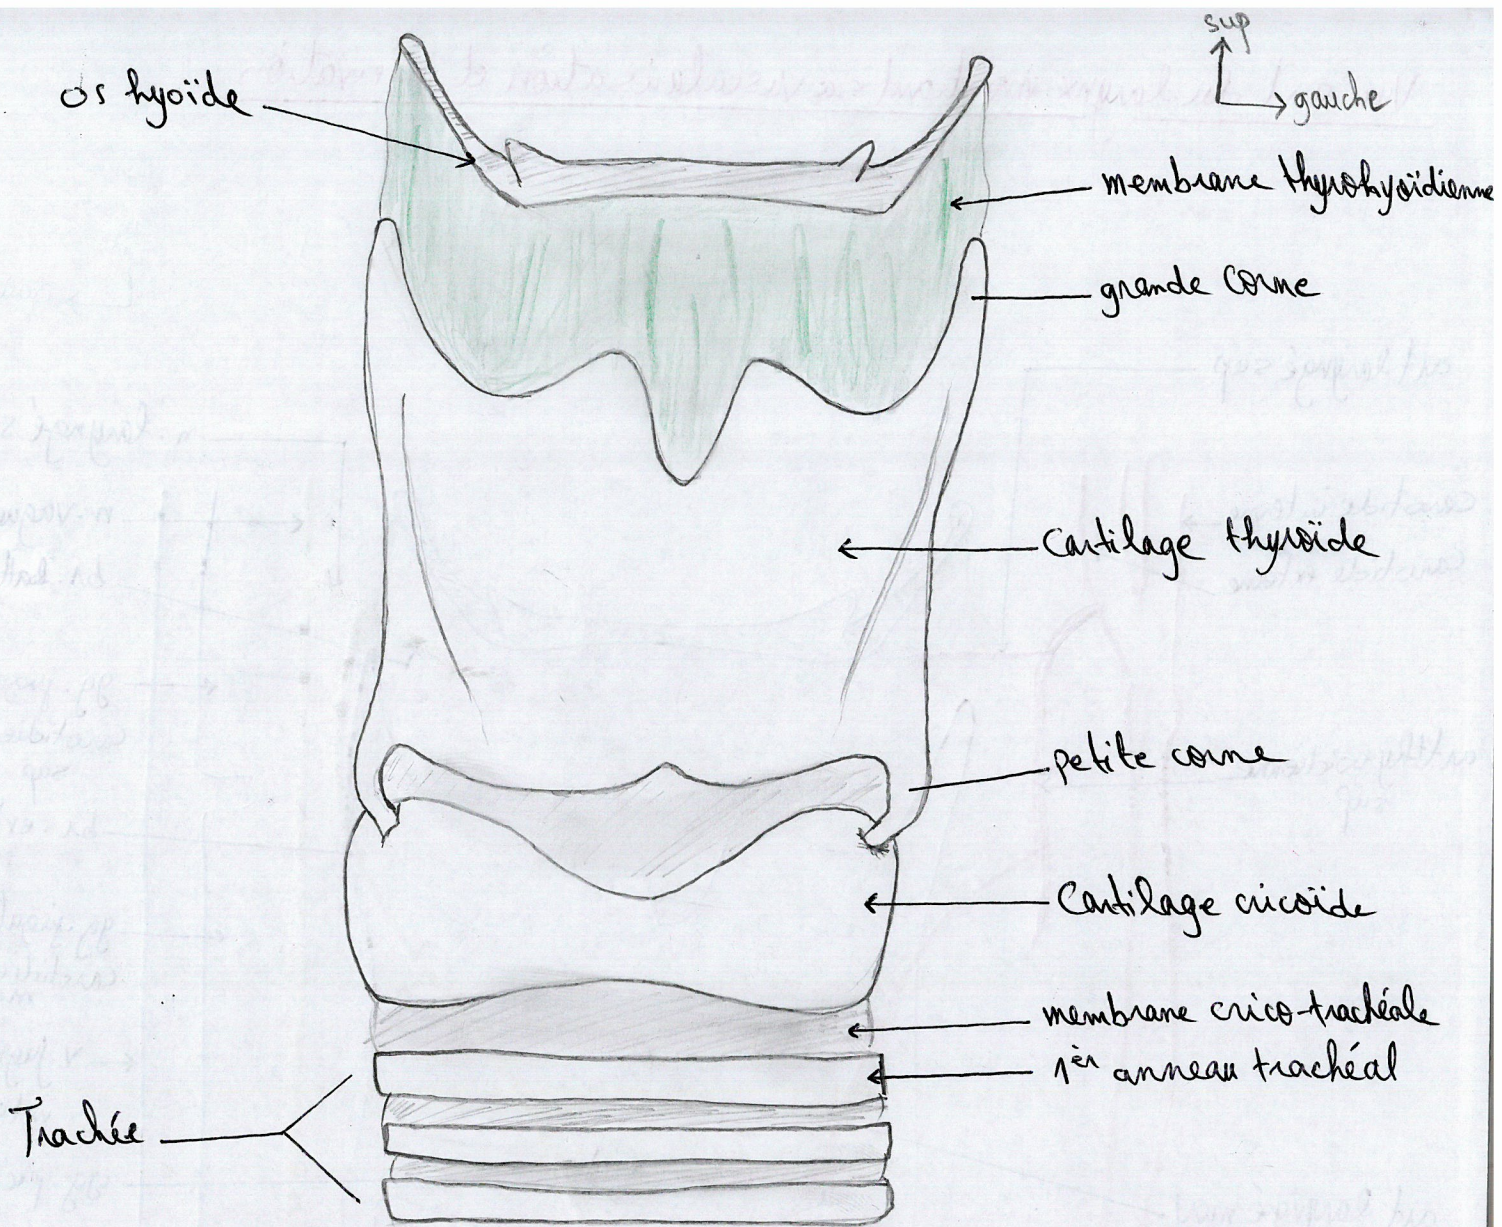 sup
gauche
os hyoïde
membrane thyrohyoïdienne
grande corne
cartilage thyroïde
petite corne
Cartilage cricoïde
membrane crico-trachéale
1er anneau trachéal
Trachée